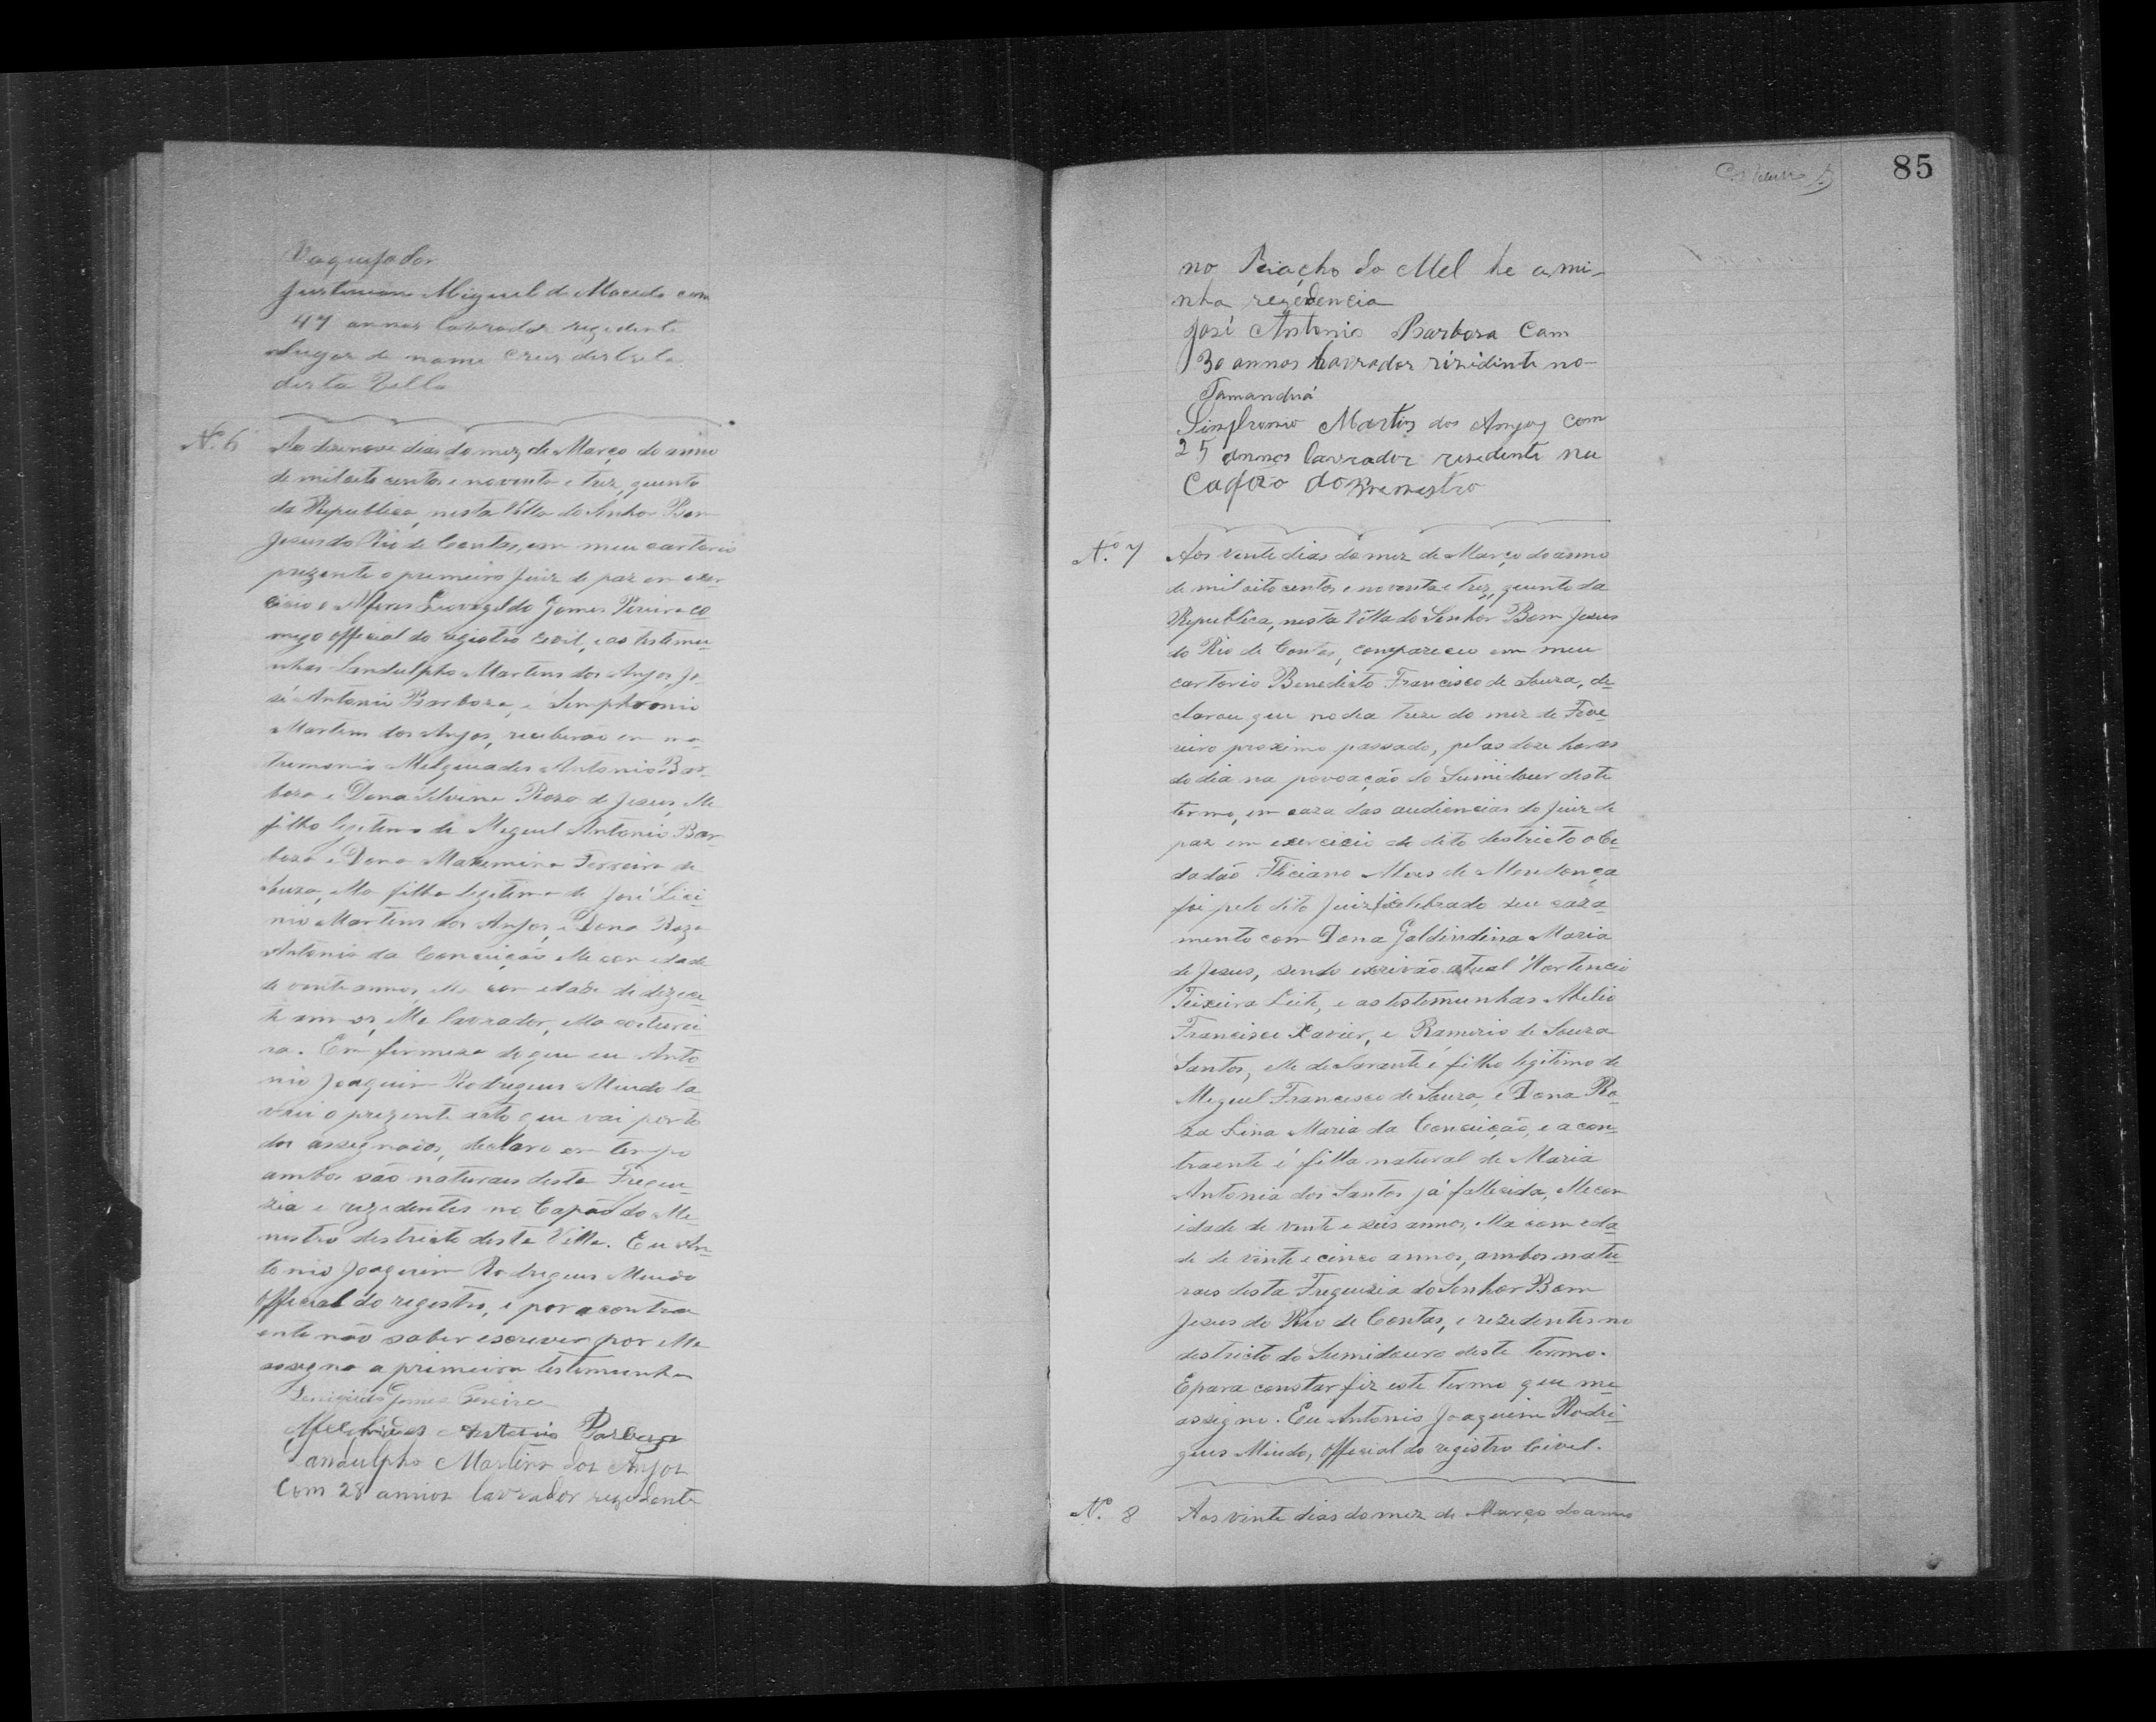 Vaquejador
Justiniano Miguel de Macedo com
47 annos lavrador rezidente
Lugar de nome Cruz districto
desta Villa
N.º 6
Aos dezenove dias do mez de Março do anno
de mil oito centos e noventa e trez, quinto
da Republica, nesta Villa do Senhor Bom
Jesus do Rio de Contas, em meu cartorio
prezente o premeiro Juiz de paz em exer-
cicio o Alferes Leovegildo Gomes Pereira co
migo official do registro civil, e as testemu-
nhas Landulpho Martins dos Anjos, Jo-
sé Antonio Barboza, e Semphronio
Martins dos Anjos, receberão em ma-
trimonio Melquiades Antonio Bar-
boza e Dona Silvina Roza de Jesus, elle
filho legitimo de Miguel Antonio Bar-
boza e Dona Maximina Ferreira de
Souza, ella filha legitima de José Lici-
nio Martins dos Anjos, e Dona Roza
Antonia da Conceição elle com edade
de vinte annos, ella com edade de dezese-
te annos, elle lavrador, ella costurei
ra. Em firmeza do que eu Anto
nio Joaquim Rodrigues Miudo la-
vrei o prezente acto que vai por to
dos assegnados, declaro em tempo
ambos são naturaes desta Fregue-
zia e rezidentes no Capão do Me-
nestro districto desta Villa. Eu An-
tonio Joaquim Rodrigues Miudo
Official do registro, e por a contra
ente não saber escrever por ella
assegna a primeira testemunha
Gomes Pereira
Melchiades Antonio Barboza
Landulpho Martins dos Anjos
Com 28 annos lavrador rezedente
85
no Riacho do Mel he a mi-
nha rezedencia
José Antonio Barboza Com
30 annos lavrador rizidinte no
Tamanduá
Sinphronio Martins dos Anjos com
25 annos lavrador resedente nu
Capão do Menestro
N.º 7
Aos vinte dias do mez de Março do anno
de mil oito centos e noventa e trez, quinto da
Republica, nesta Villa do Senhor Bom Jesus
do Rio de Contas, compareceu em meu
cartorio Benedicto Francisco de Souza, de-
clarou que no dia treze do mez de Feve-
reiro proximo passado, pelas doze horas
do dia na povoação do Sumidouro deste
termo, em caza das audiencias do Juiz de
paz em exercicio do dito destricto o Ci-
dadão Feliciano Alves de Mendonça
foi pelo dito Juiz celebrado seu caza-
mento com Dona Galdindina Maria
de Jesus, sendo escrivão atual Hortencio
Teixeira Leite, e as testemunhas Abilio
Francisco Xavier, e Ramerio de Souza
Santos, elle declarante é filho legitimo de
Miguel Francisco de Souza, e Dona Ro-
za Lina Maria da Conceição, e a con-
traente é filha natural de Maria
Antonia dos Santos já fallecida, elle com
idade de vinte e seis annos, ella com eda-
de de vinte e cinco annos, ambos natu-
raes desta Freguezia do Senhor Bom
Jesus do Rio de Contas, e rezedentes no
destricto do Sumidouro deste termo.
E para constar fiz este termo que me
assigno. Eu Antonio Joaquim Rodri-
gues Miudo, Official do registro Civel.
N.º 8
Aos vinte dias do mez de Março do anno